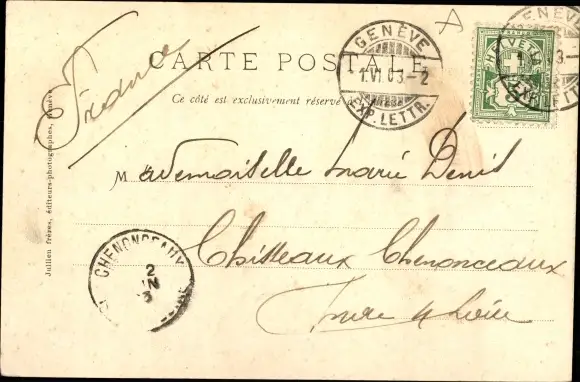 France
CARTE POSTALE
Ce côté est exclusivement réservé
GENÈVE
1.VI.03-2
EXP. LETTR.
GENÈVE
EXP. LETTR.
Mademoiselle Marie Denis
Chisseaux Chenonceaux
Indre & Loire
CHENONCEAUX
2
Jullien frères, éditeurs-photographes, Genève